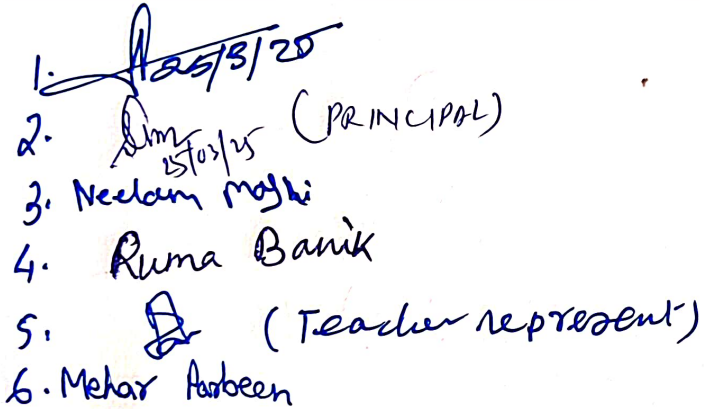 1. 25/3/25
2. 25/03/25 (PRINCIPAL)
3. Neelam Majhi
4. Ruma Banik
5. (Teacher represent)
6. Mehar Parbeen